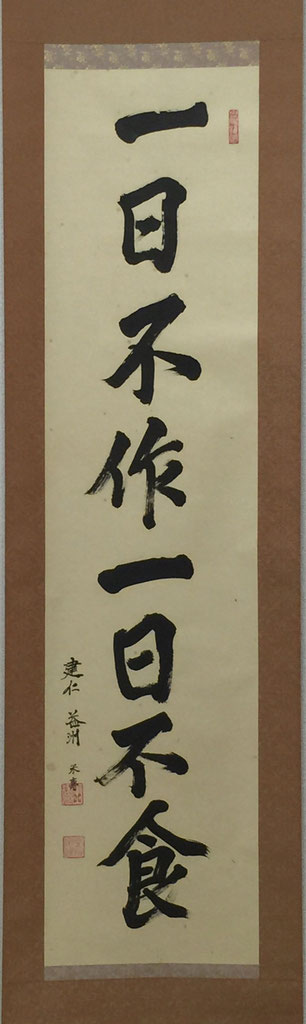 一日不作一日不食
建仁 益洲 米寿